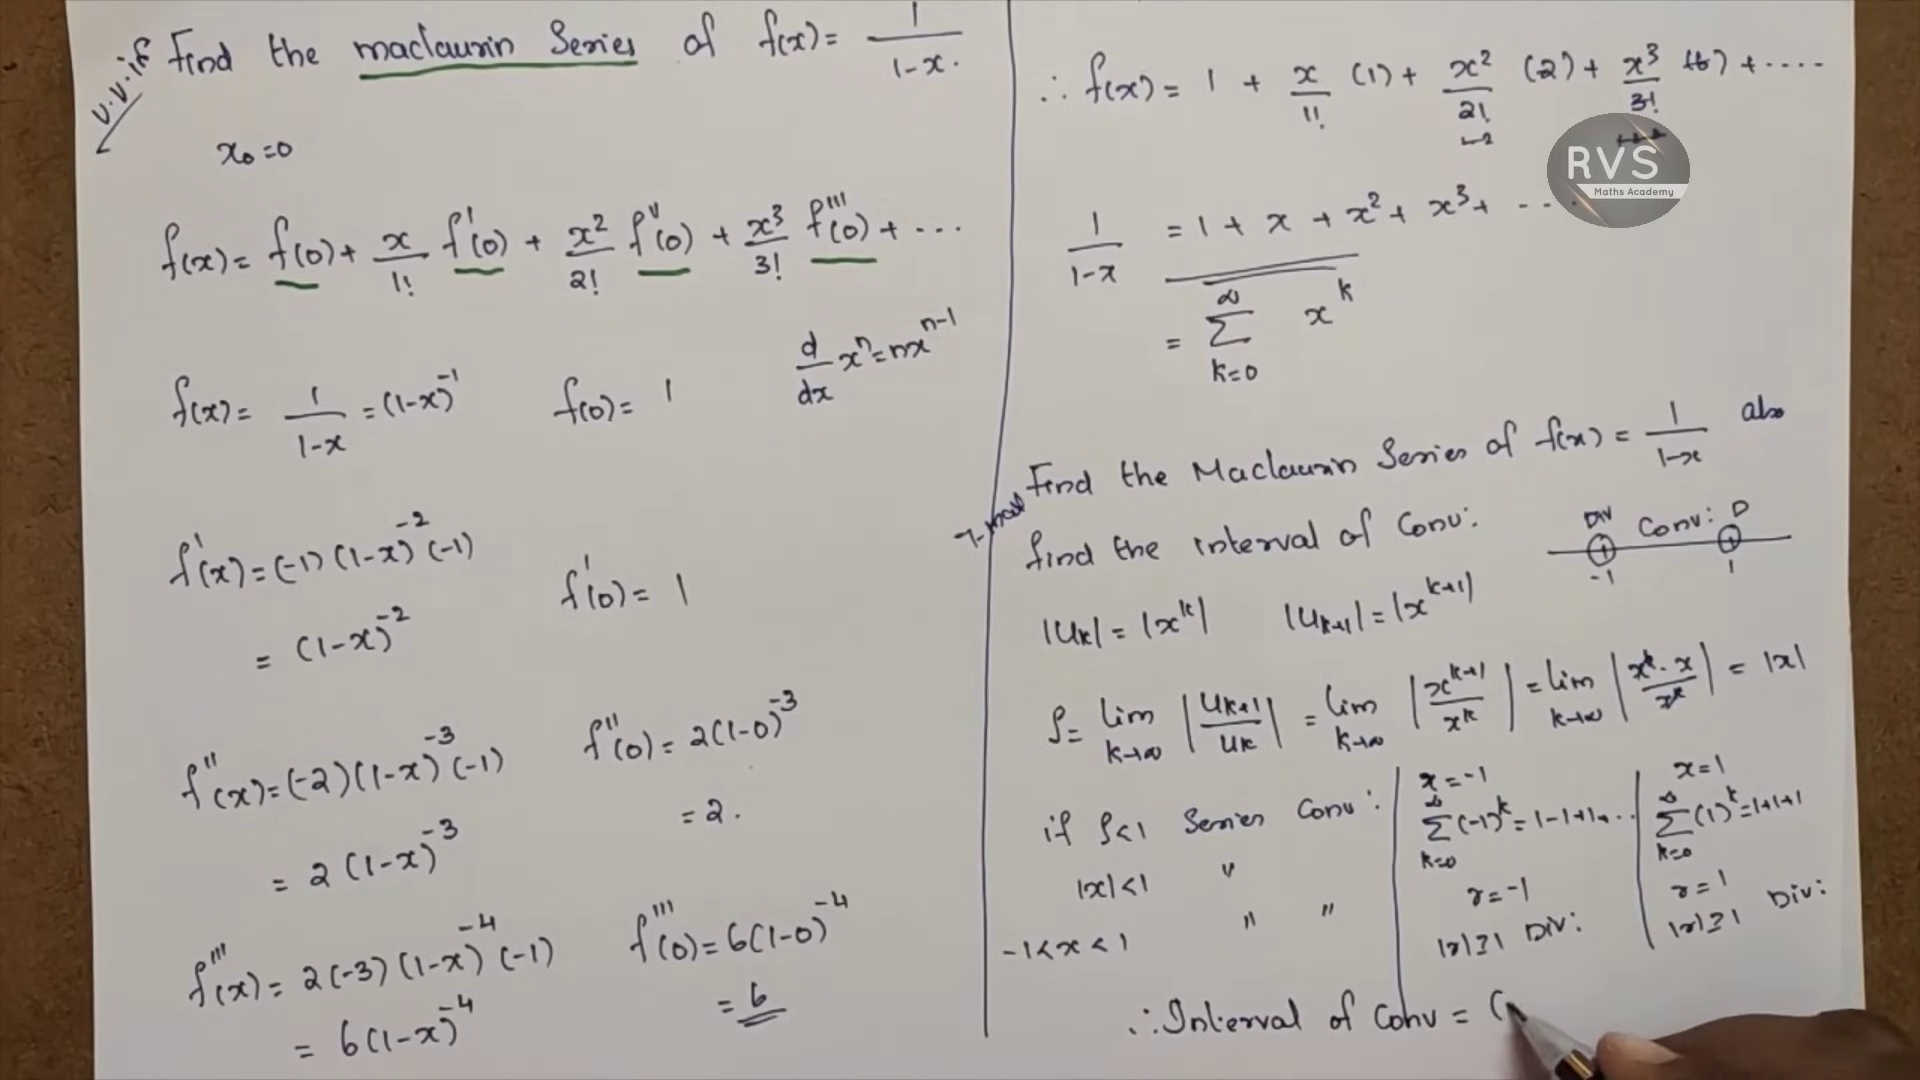 v.v.if Find the maclaurin Series of f(x) = 1/1-x.
x₀=0
f(x) = f(0) + x/1! f'(0) + x²/2! f''(0) + x³/3! f'''(0) + ...
d/dx xⁿ = nxⁿ⁻¹
f(x) = 1/1-x = (1-x)⁻¹ f(0) = 1
f'(x) = (-1) (1-x)⁻² (-1)
= (1-x)⁻² f'(0) = 1
f''(x) = (-2) (1-x)⁻³ (-1) f''(0) = 2(1-0)⁻³
= 2 (1-x)⁻³ = 2.
f'''(x) = 2(-3) (1-x)⁻⁴ (-1) f'''(0) = 6(1-0)⁻⁴
= 6(1-x)⁻⁴ = 6
∴ f(x) = 1 + x/1! (1) + x²/2! (2) + x³/3! (6) + ....
RVS
Maths Academy
1/1-x = 1 + x + x² + x³ + ...
= ∑ₖ₌₀^∞ xᵏ
Find the Maclaurin Series of f(x) = 1/1-x also
find the interval of Conv:
Div Conv: D
-1 1
|Uₖ| = |xᵏ| |Uₖ₊₁| = |xᵏ⁺¹|
ρ = lim k→∞ |Uₖ₊₁/Uₖ| = lim k→∞ |xᵏ⁺¹/xᵏ| = lim k→∞ |xᵏ·x/xᵏ| = |x|
if ρ<1 Series Conv:
|x|<1 "
-1<x<1 " "
x = -1
∑ₖ₌₀^∞ (-1)ᵏ = 1-1+1+...
r = -1
|r|≥1 Div:
x=1
∑ₖ₌₀^∞ (1)ᵏ = 1+1+1
r = 1
|r|≥1 Div:
∴ Interval of Conv = (